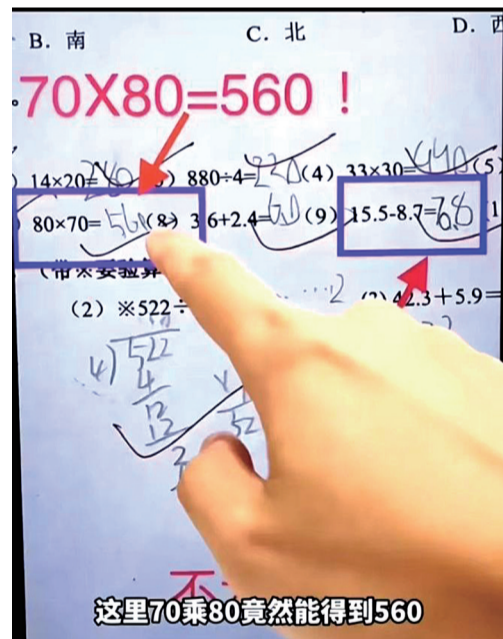 B. 南 C. 北 D. 西
70X80=560！
14×20=280 880÷4=220 (4) 33×30=990 (5
80×70=560 (8) 3.6+2.4=6.0 (9) 15.5-8.7=6.8
(带※要验算
(2) ※522÷ ……2 42.3+5.9=
4 522
4
12
12
2
52
这里70乘80竟然能得到560